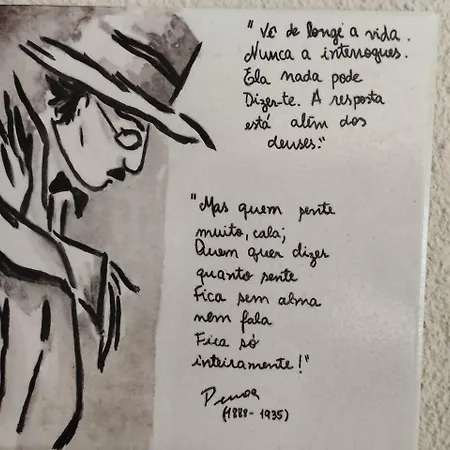 "Vê de longe a vida.
Nunca a interrogues.
Ela nada pode
Dizer-te. A resposta
está além dos
deuses."
"Mas quem sente
muito, cala;
Quem quer dizer
quanto sente
Fica sem alma
nem fala
Fica só
inteiramente!"
Pessoa
(1888-1935)